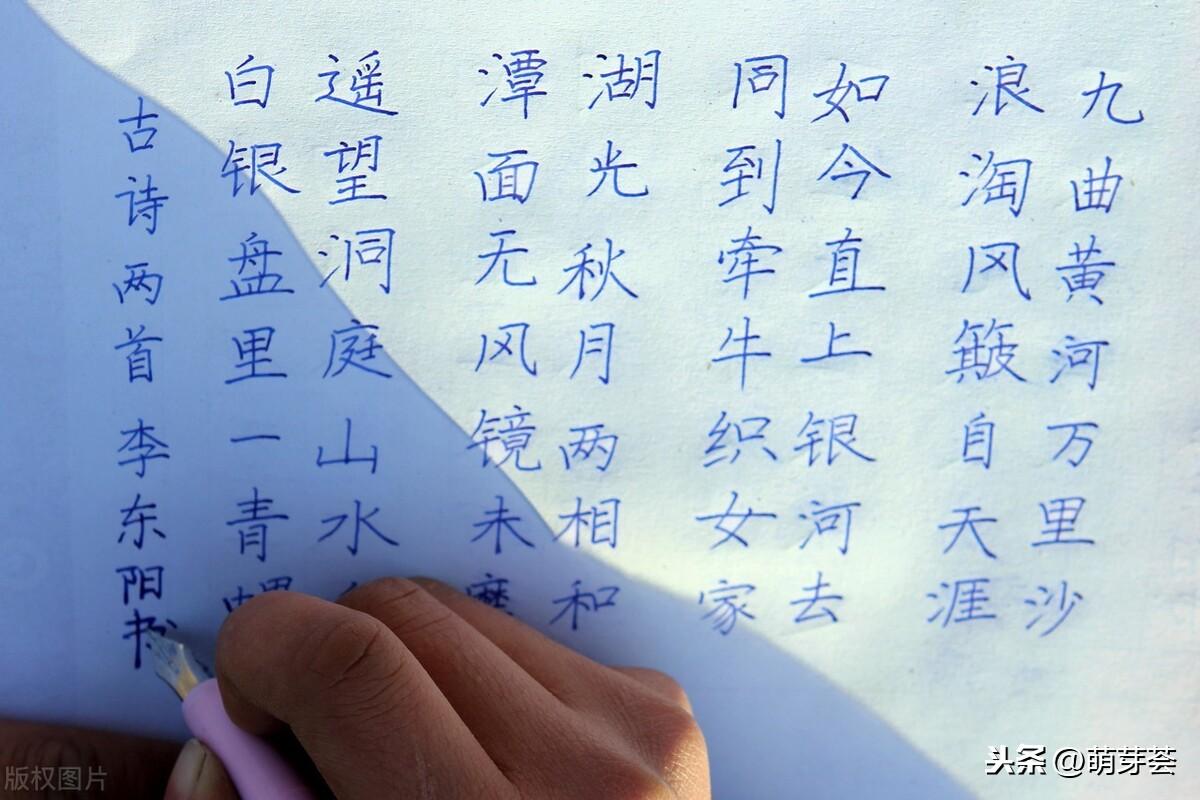 九曲黄河万里沙
浪淘风簸自天涯
如今直上银河去
同到牵牛织女家
湖光秋月两相和
潭面无风镜未磨
遥望洞庭山水
白银盘里一青螺
古诗两首李东阳书
版权图片
头条 @萌芽荟